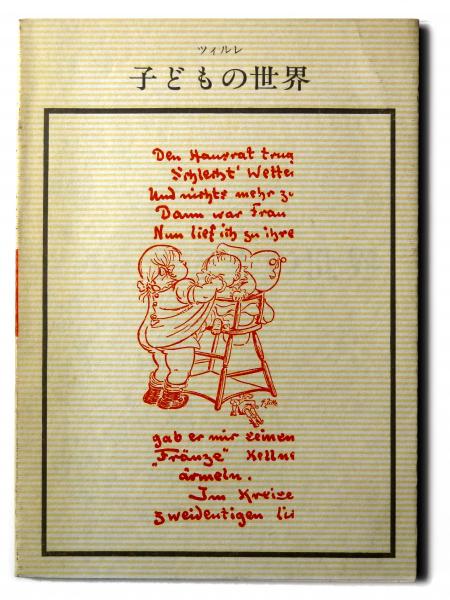 ツィルレ
子どもの世界
Den Hausrat trug
Schlecht' Wetter
Und nichts mehr zu
Dann war Frau
Nun lief ich zu ihre
gab er mir seinen
„Fränze" Kellne
ärmeln.
Im Kreise
zweideutigen lie